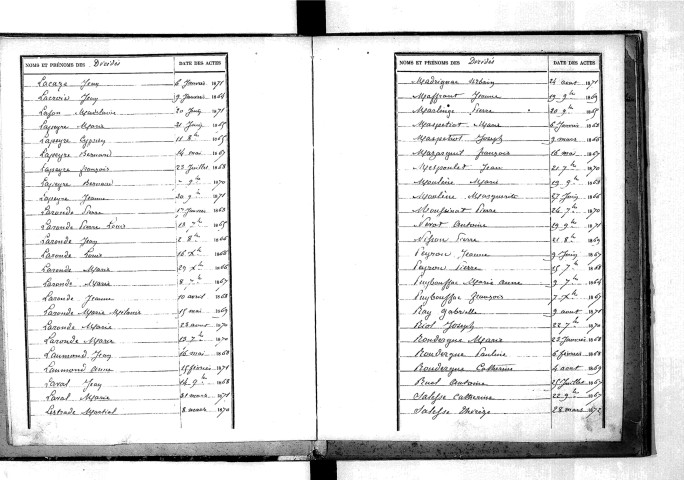 NOMS ET PRÉNOMS DES Décédés DATE DES ACTES
Lacaze Jean 6 Janvier 1871
Lacroix Jean 9 Janvier 1864
Lafon Madeleine 20 Juin 1871
Lapeyre Marie 21 Juin 1865
Lapeyre Cyprien 11 8bre 1865
Lapeyre Bernard 14 mai 1867
Lapeyre françois 23 Juillet 1868
Lapeyre Bernard 9bre 1870
Lapeyre Jeanne 20 9bre 1871
Laronde Pierre 17 Janvier 1863
Laronde Pierre Louis 13 7bre 1865
Laronde Jean 2 8bre 1866
Laronde Louis 16 Xbre 1866
Laronde Marie 29 Xbre 1866
Laronde Marie 8 7bre 1867
Laronde Jeanne 10 avril 1868
Laronde Marie Mélanie 15 mai 1869
Laronde Marie 22 aout 1870
Laronde Marie 13 7bre 1870
Laumond Jean 16 mai 1868
Laumond Anne 25 février 1871
Laval Jean 14 9bre 1868
Laval Marie 31 mars 1871
Lestrade Martial 8 mars 1870
NOMS ET PRÉNOMS DES Décédés DATE DES ACTES
Madrignac Urbain 24 aout 1871
Maffrant Jeanne 19 9bre 1869
Marlinge Pierre 20 9bre 1865
Maspetiot Marie 6 Janvier 1868
Maspetiot Joseph 9 mars 1866
Mazarguil françois 16 mai 1867
Mespoulet Jean 21 7bre 1870
Moulène Marie 19 9bre 1868
Moulène Marguerite 27 Juin 1866
Moussinat Pierre 26 7bre 1870
Nirat Antoine 29 9bre 1871
Nifron Pierre 21 8bre 1869
Peyron Jeanne 9 Juin 1867
Peyron Pierre 25 7bre 1868
Puybouffat Marie anne 9 7bre 1864
Puybouffat François 7 Xbre 1867
Ray Gabrielle 9 aout 1871
Riol Joseph 22 7bre 1870
Roudergue Marie 23 Janvier 1868
Roudergue Pauline 6 février 1868
Roudergue Catherine 4 aout 1869
Ruol Antoine 25 Juillet 1867
Salesse Catherine 22 9bre 1867
Salesse Thérèze 28 mars 1872